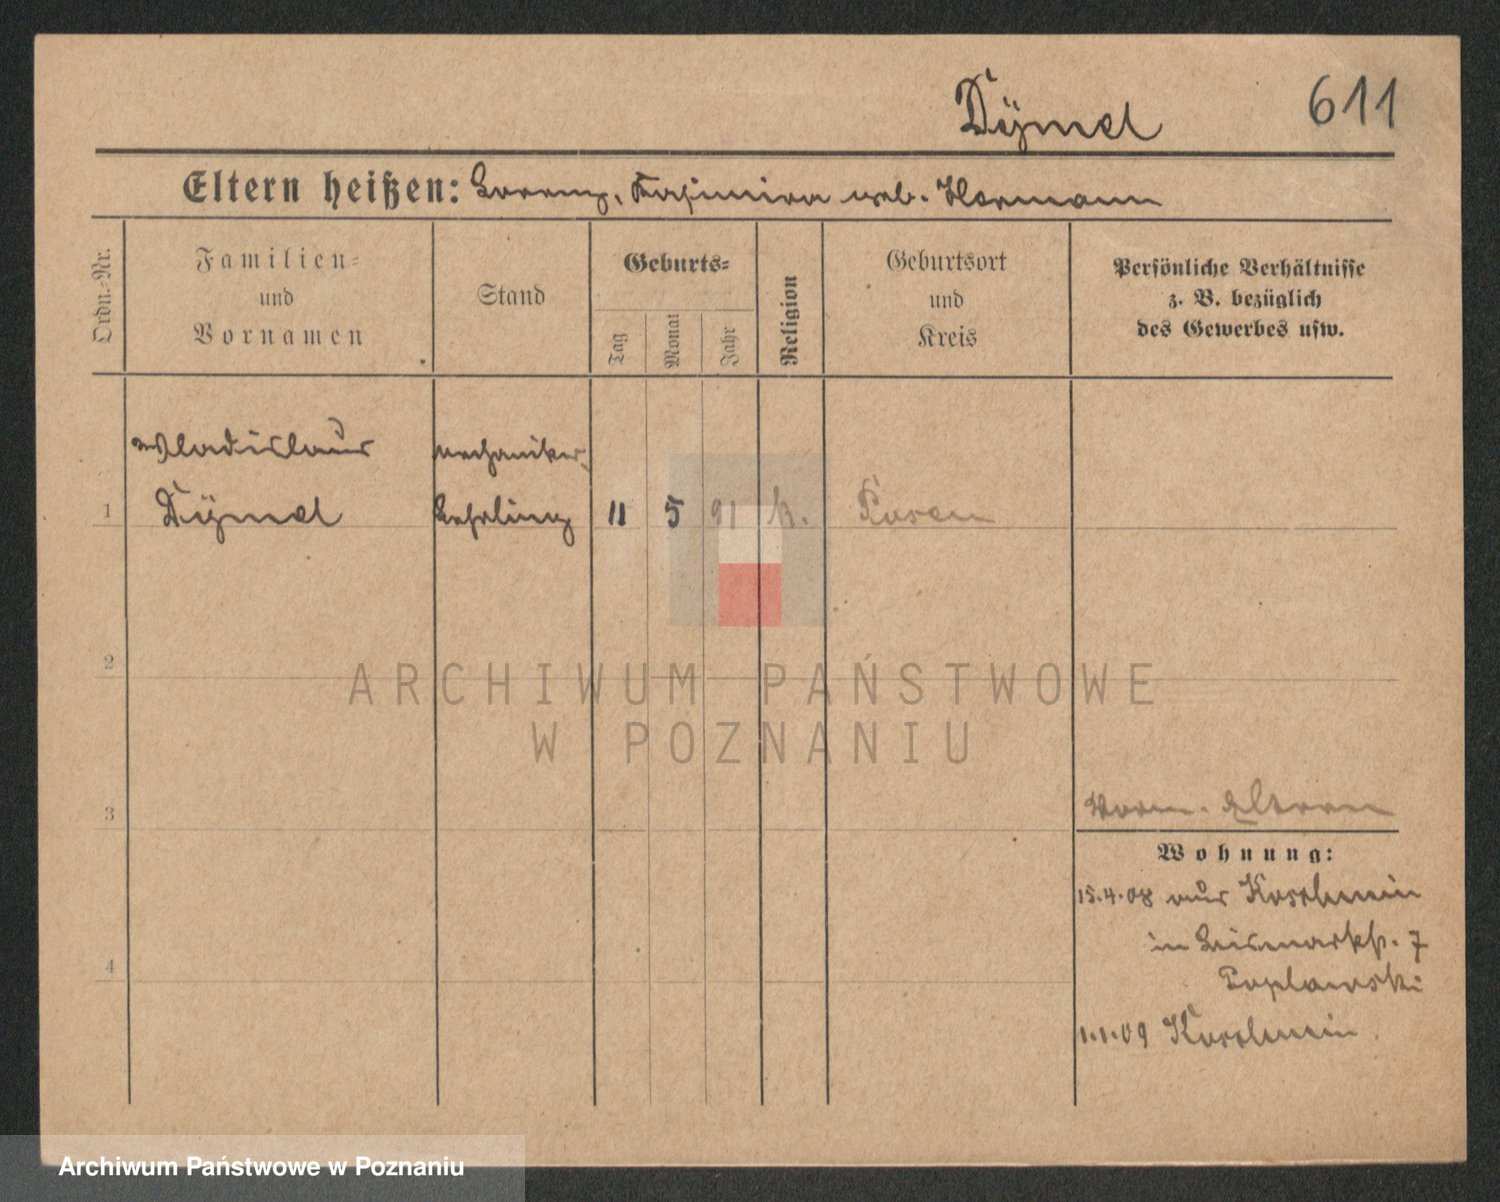 Dÿmel 611
Eltern heißen: Lorenz, Kasimira geb. Hermann
Ordn.-Nr.
Familien-
und
Vornamen
Stand
Geburts-
Tag
Monat
Jahr
Religion
Geburtsort
und
Kreis
Persönliche Verhältnisse
z. B. bezüglich
des Gewerbes usw.
Wladislaus Mechaniker-
1 Dÿmel Lehrling 11 5 91 k. Posen
2
ARCHIWUM PAŃSTWOWE
W POZNANIU
3 Eltern
Wohnung:
15.4.08 aus Koschmin
in Bismarkstr. 7
4 Poplawski
1.1.09 Koschmin
Archiwum Państwowe w Poznaniu